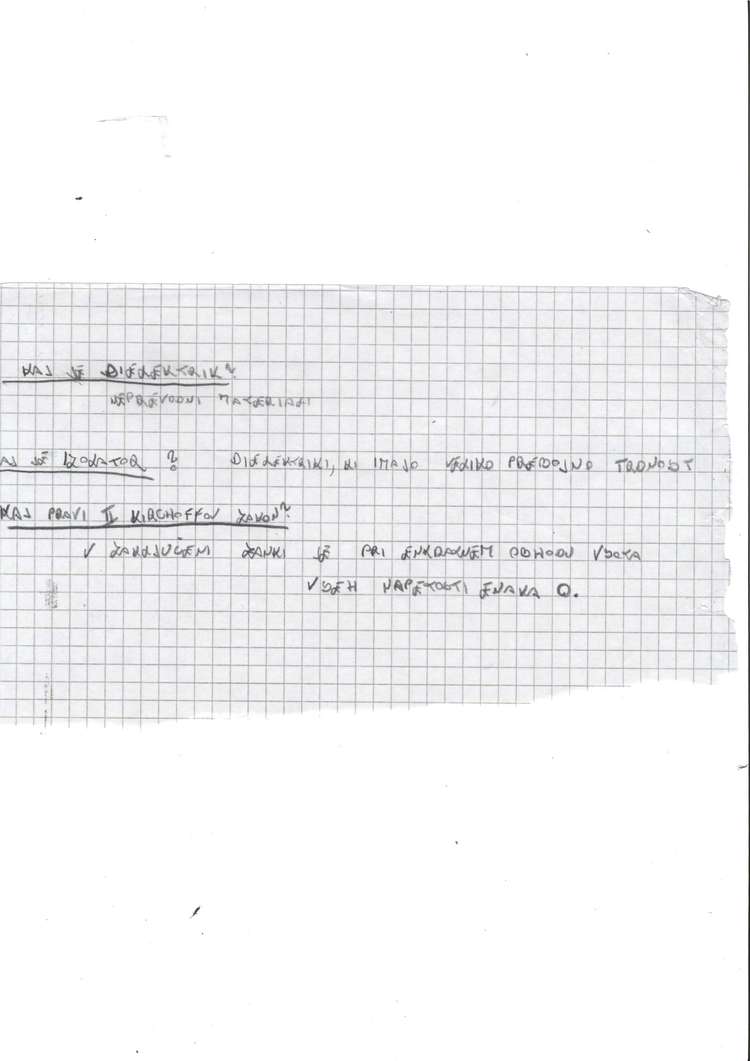 KAJ JE DIELEKTRIK?
NEPREVODNI MATERIALI
AJ JE IZOLATOR ? DIELEKTRIKI, KI IMAJO VELIKO PREBOJNO TRDNOST
KAJ PRAVI II KIRCHOFFOV ZAKON?
V ZAKLJUČENI ZANKI JE PRI ENKRATNEM OBHODU VSOTA
VSEH NAPETOSTI ENAKA 0.